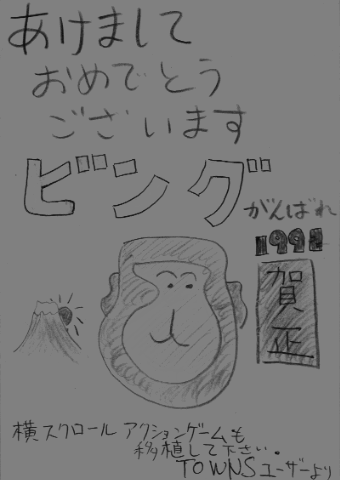 あけまして
おめでとう
ございます
ビング
がんばれ
賀正
横スクロール アクションゲームも
移植して下さい。
TOWNSユーザーより